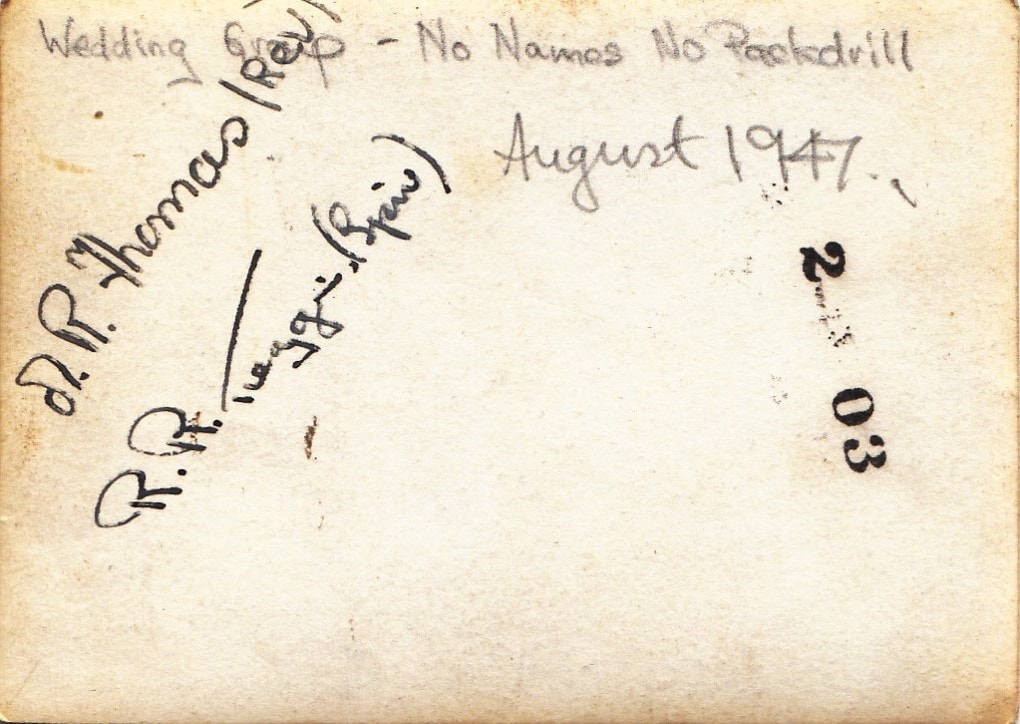 Wedding Group - No Names No Packdrill
August 1947.
R. Thomas (Rev)
R. R.
2 03